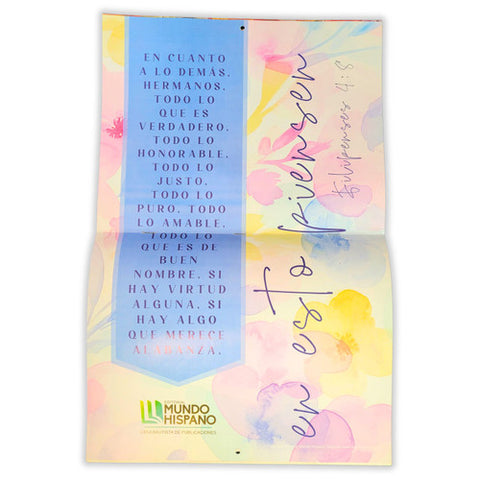 EN CUANTO
A LO DEMÁS,
HERMANOS,
TODO LO
QUE ES
VERDADERO,
TODO LO
HONORABLE,
TODO LO
JUSTO,
TODO LO
PURO, TODO
LO AMABLE,
TODO LO
QUE ES DE
BUEN
NOMBRE, SI
HAY VIRTUD
ALGUNA, SI
HAY ALGO
QUE MERECE
ALABANZA,
en esto piensen
Filipenses 4:8
EDITORIAL
MUNDO
HISPANO